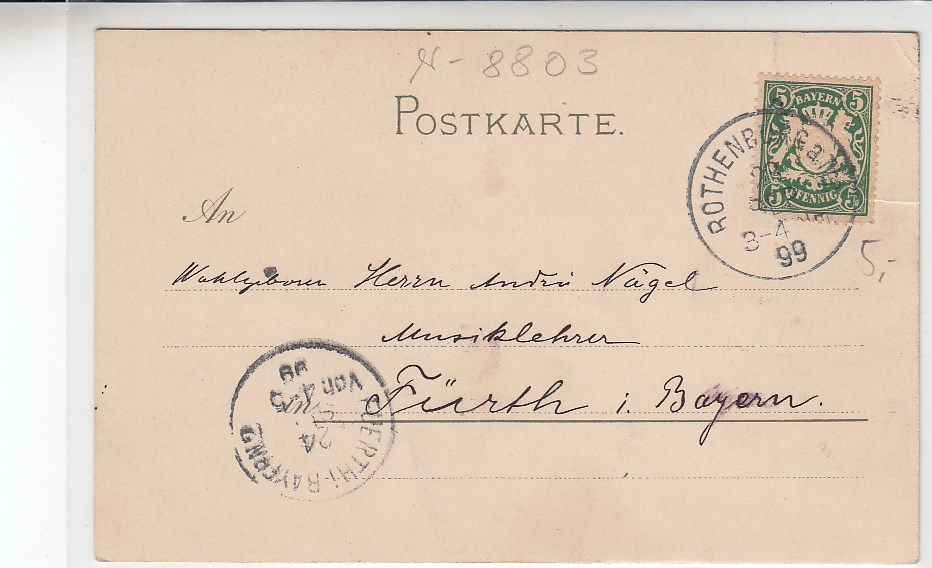 N-8803
POSTKARTE.
5 BAYERN 5
5 PFENNIG 5
ROTHENBURG a/T.
3-4
99
5,-
An
Wohlgeboren Herrn Andrä Nägel
Musiklehrer
in Fürth i. Bayern.
FUERTH i. BAYERN 2
24
Vor. 4-5
99